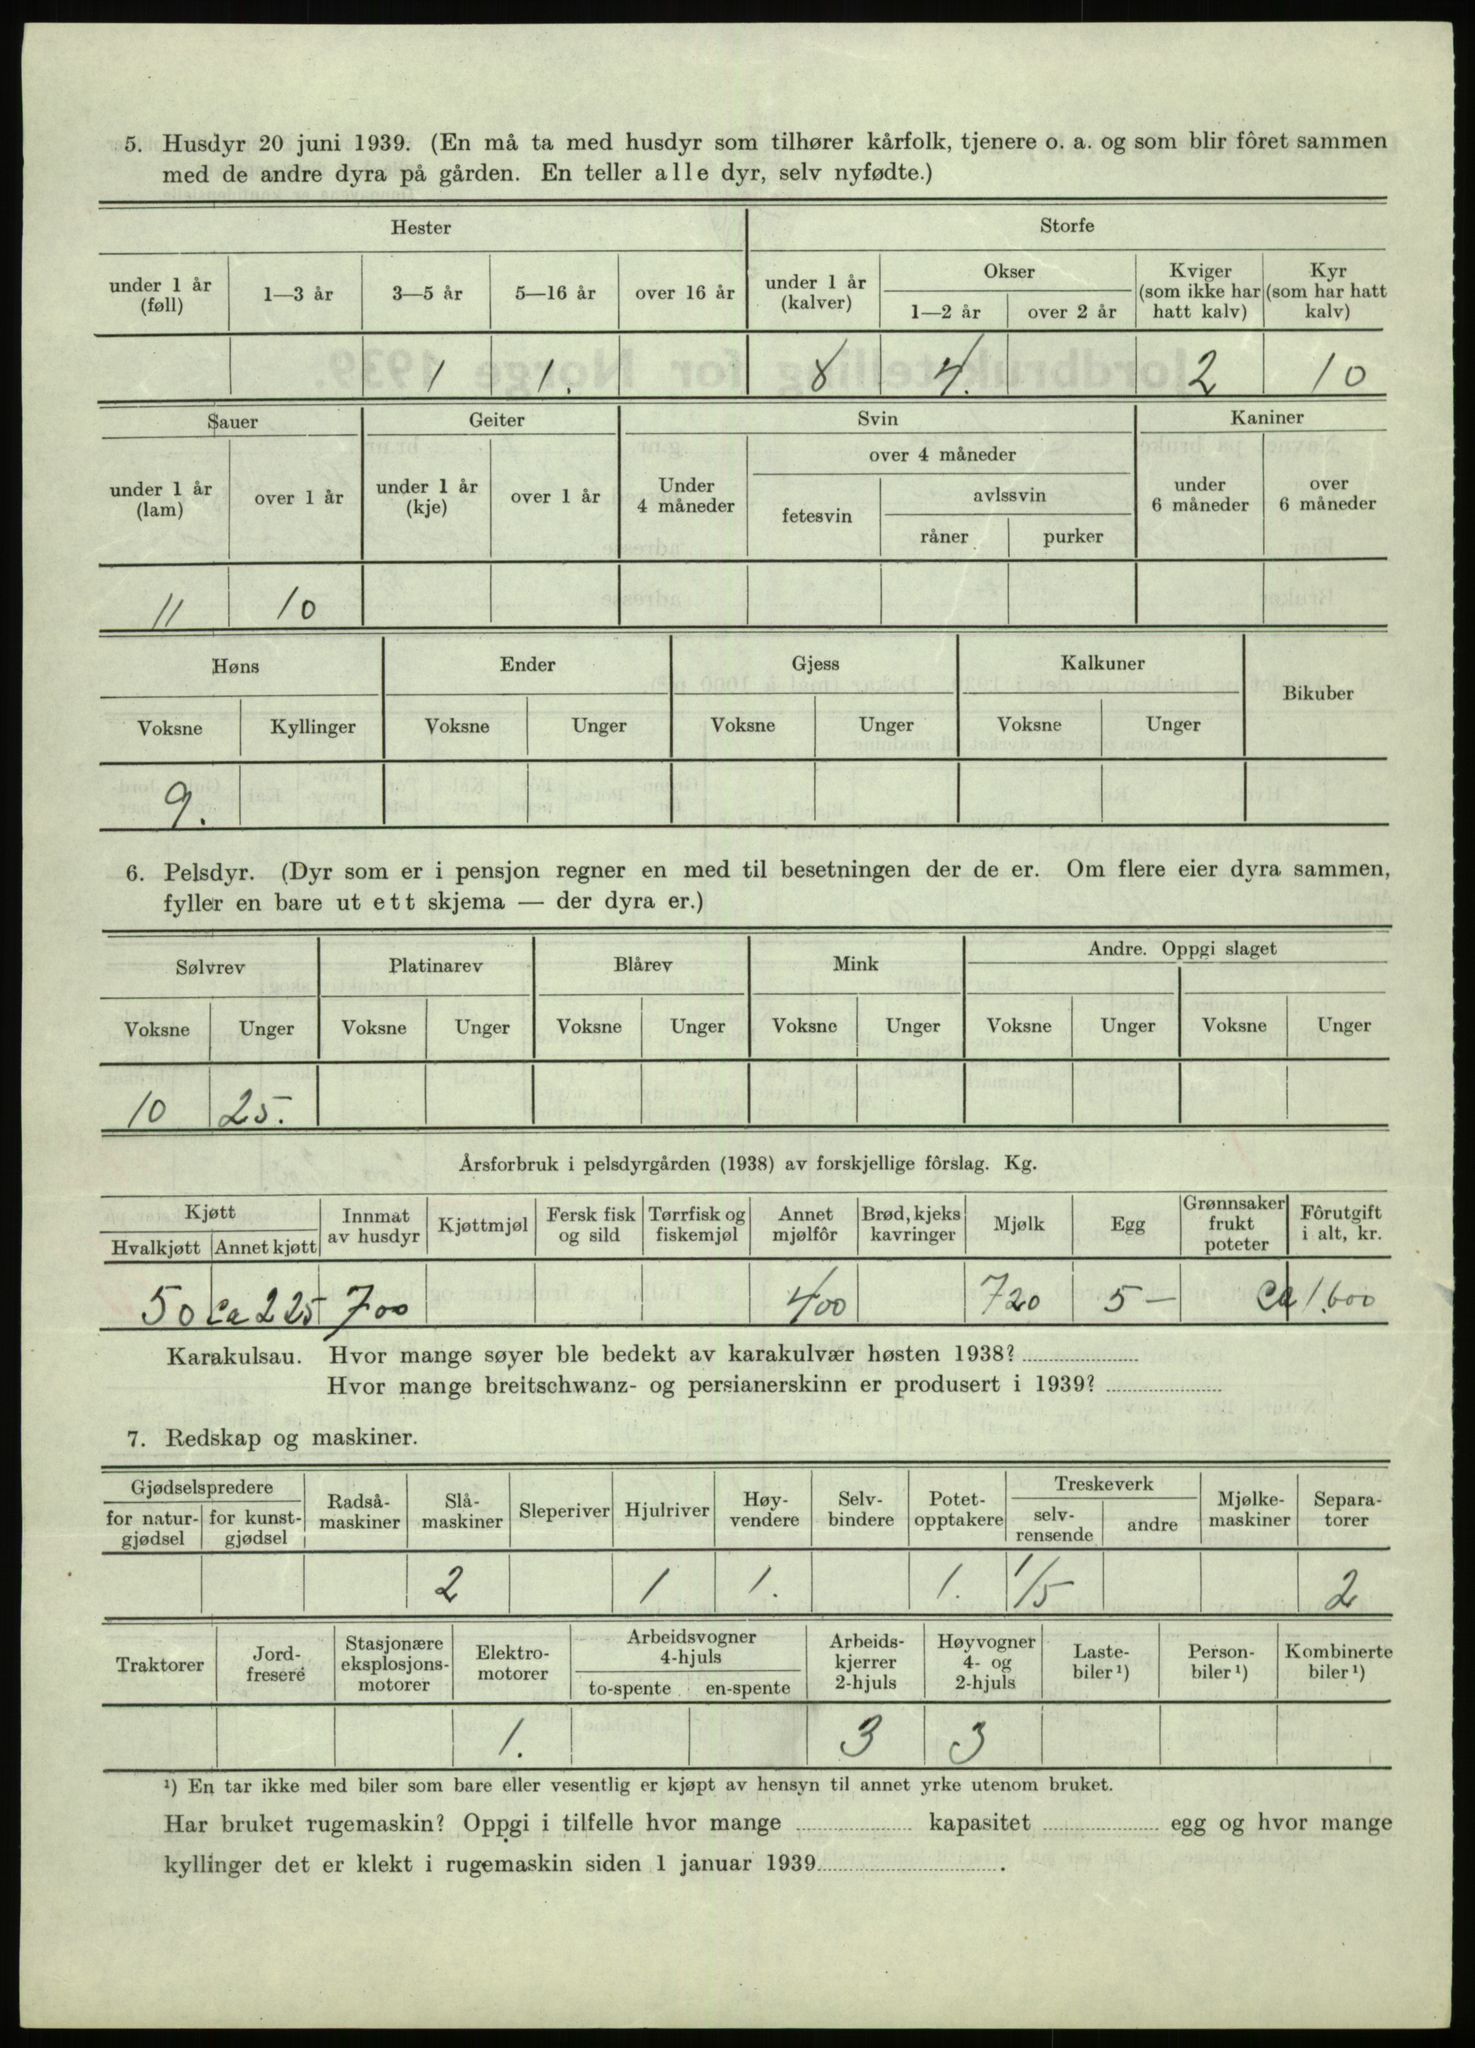 5. Husdyr 20 juni 1939. (En må ta med husdyr som tilhører kårfolk, tjenere o. a. og som blir fôret sammen
med de andre dyra på gården. En teller alle dyr, selv nyfødte.)
Hester Storfe
under 1 år (føll) 1—3 år 3—5 år 5—16 år over 16 år under 1 år (kalver) Okser 1—2 år over 2 år Kviger (som ikke har hatt kalv) Kyr (som har hatt kalv)
1 1. 8 4. 2 10
Sauer Geiter Svin Kaniner
under 1 år (lam) over 1 år under 1 år (kje) over 1 år Under 4 måneder over 4 måneder fetesvin avlssvin råner purker under 6 måneder over 6 måneder
11 10
Høns Ender Gjess Kalkuner Bikuber
Voksne Kyllinger Voksne Unger Voksne Unger Voksne Unger
9.
6. Pelsdyr. (Dyr som er i pensjon regner en med til besetningen der de er. Om flere eier dyra sammen,
fyller en bare ut ett skjema — der dyra er.)
Sølvrev Platinarev Blårev Mink Andre. Oppgi slaget
Voksne Unger Voksne Unger Voksne Unger Voksne Unger Voksne Unger Voksne Unger
10 25.
Årsforbruk i pelsdyrgården (1938) av forskjellige fôrslag. Kg.
Kjøtt Hvalkjøtt Annet kjøtt Innmat av husdyr Kjøttmjøl Fersk fisk og sild Tørrfisk og fiskemjøl Annet mjølfôr Brød, kjeks kavringer Mjølk Egg Grønnsaker frukt poteter Fôrutgift i alt, kr.
50 ca 225 700 400 720 5 — ca 1.600
Karakulsau. Hvor mange søyer ble bedekt av karakulvær høsten 1938?
Hvor mange breitschwanz- og persianerskinn er produsert i 1939?
7. Redskap og maskiner.
Gjødselspredere for natur-gjødsel for kunst-gjødsel Radså-maskiner Slå-maskiner Sleperiver Hjulriver Høy-vendere Selv-bindere Potet-opptakere Treskeverk selv-rensende andre Mjølke-maskiner Separa-torer
2 1 1. 1. 1/5 2
Traktorer Jord-fresere Stasjonære eksplosjons-motorer Elektro-motorer Arbeidsvogner 4-hjuls to-spente en-spente Arbeids-kjerrer 2-hjuls Høyvogner 4- og 2-hjuls Laste-biler ¹) Person-biler ¹) Kombinerte biler ¹)
1. 3 3
¹) En tar ikke med biler som bare eller vesentlig er kjøpt av hensyn til annet yrke utenom bruket.
Har bruket rugemaskin? Oppgi i tilfelle hvor mange kapasitet egg og hvor mange
kyllinger det er klekt i rugemaskin siden 1 januar 1939 .